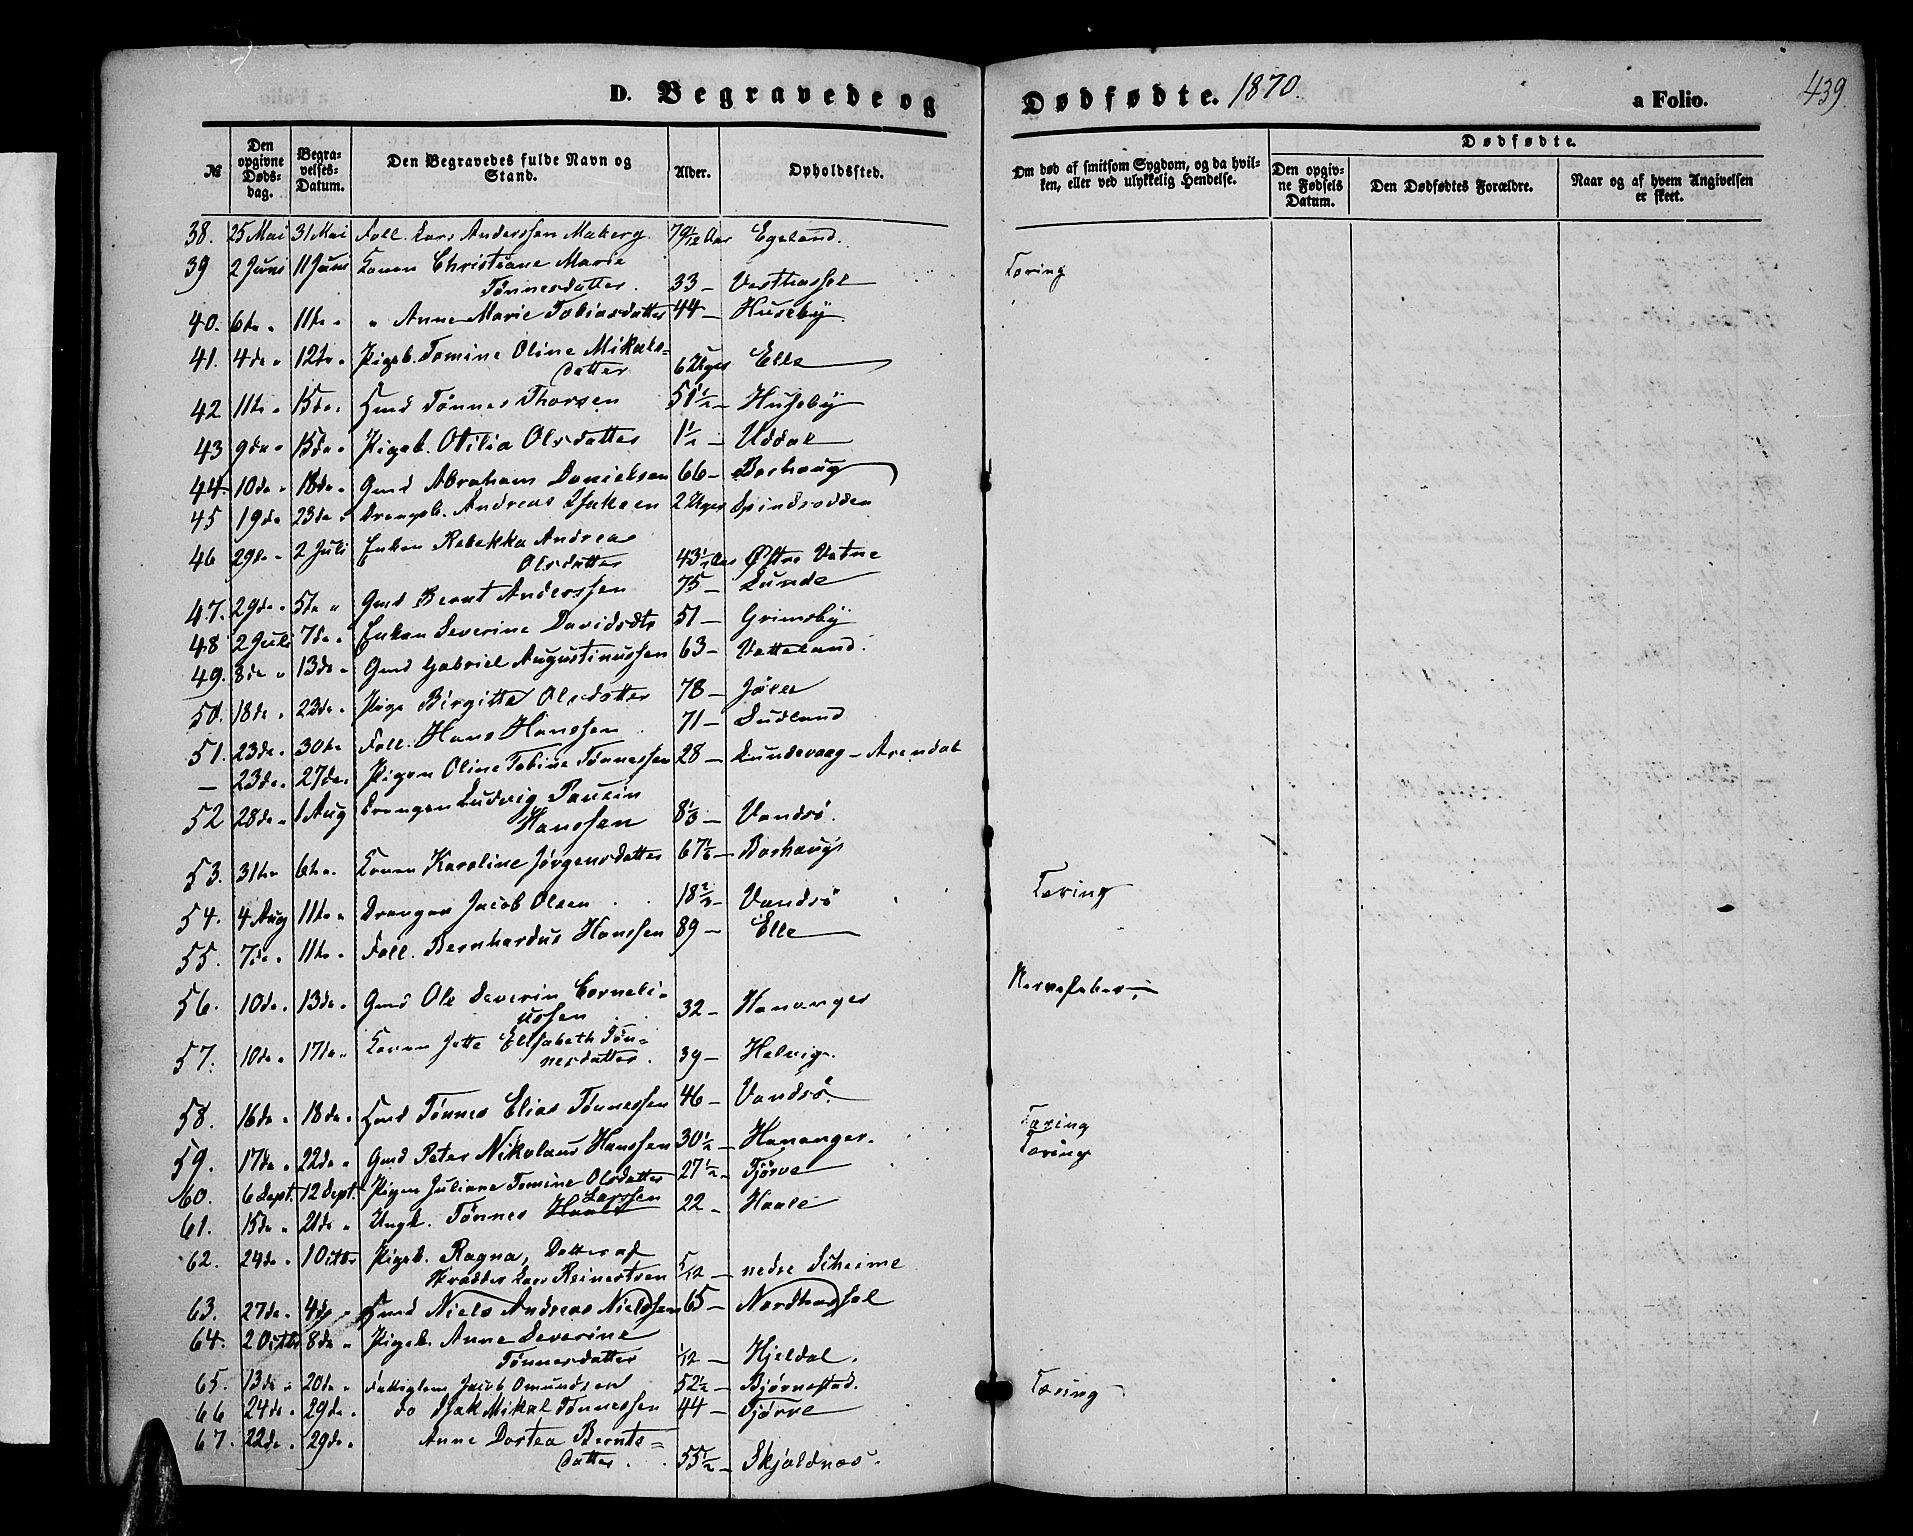 D. Begravede og Dødfødte. 1870. a Folio. 439.
№
Den opgivne Dødsdag.
Begravelses-Datum.
Den Begravedes fulde Navn og Stand.
Alder.
Opholdssted.
Om død af smitsom Sygdom, og da hvilken, eller ved ulykkelig Hendelse.
Dødfødte.
Den opgivne Fødsels Datum.
Den Dødfødtes Forældre.
Naar og af hvem Angivelsen er skeet.
38. 25 Mai 31 Mai Foll. Lars Anderssen Maberg 79 Aar Egeland.
39 2 Juni 11 Juni Konen Christiane Marie Tæring
Tønnesdatter. 33 – Vesthassel
40. 6te " 11te " " Anne Marie Tobiasdatter 44 – Huseby
41. 4de " 12te " Pigeb. Tomine Oline Mikals-
datter 6 Uger Elle
42 11te " 15de " Gmd Tønnes Thorsen 51 1/2 – Huseby
43 9de " 15de " Pigeb. Otilia Olsdatter 1 1/2 – Uddal
44 10de " 18de " Gmd Abraham Danielsen 66 – Borhaug
45 19de 23de " Drengeb. Andreas Isaksen 2 Uger Spindsodden
46 29de " 2 Juli Enken Rebekka Andrea
Olsdatter 43 1/2 Aar Østre Vatne
47. 29de " 5te " Gmd Bernt Anderssen 75 – Lunde
48 2 Juli 7de " Enken Severine Davidsdtr 51 – Grimsby
49. 8de " 13de " Gmd Gabriel Augustinussen 63 – Vatteland.
50. 18de " 23de " Pige Birgitte Olsdatter 78 – Jøllе
51. 23de " 30te Foll. Hans Hanssen 71 – Sudland
— 23de " 27de " Pigen Oline Tobine Tønnessen 28 – Lundevaag – Arendal
52 28de " 1 Aug Drengen Ludvig Paulin
Hanssen 8 1/3 – Vandsø.
53. 31te 6te " Konen Karoline Jørgensdatter 67 1/6 – Borhaug
54. 4 Aug 11te " Drengen Jacob Olsen 18 2/3 – Vandsø Tæring
55. 7de " 11te " Foll. Bernhardus Hanssen 89 – Elle
56. 10de " 13de " Gmd Ole Severin Corneli- Nervefeber
ussen 32 – Hananger
57. 10de " 17de " Konen Jette Elisabeth Tøn-
nesdatter. 39 – Helvig.
58. 16de " 18de " Gmd Tønnes Elias Tønnessen 46 – Vandsø.
59. 17de " 22de " Gmd Peter Nikolaus Hanssen 30 1/2 – Hananger. Tæring
60. 6 Sept. 12 Sept. Pigen Juliane Tomine Olsdatter 27 1/2 – Tjørve Tæring
61. 15de " 21de " Ungk. Tønnes Larssen 22 – Haale
62. 24de " 1 Octbr Pigeb. Ragna, Datter af
Skrædder Lars Reinertsen 5/12 – nedre Skeime
63. 27de " 4de " Gmd Niels Andreas Nielssen 65 – Nordhassel
64. 2 Octbr 8de " Pigeb. Anne Severine
Tønnesdatter 1/12 – Hjeldal.
65. 13de " 20de " Fattiglem Jacob Omundsen 52 1/2 – Bjørnestad. Tæring
66 24de " 29de " do Isak Mikal Tønnessen 44 – Tjørve
67. 22de " 29de " Anne Dortea Bernts-
datter. 55 1/2 – Skjoldnæs.